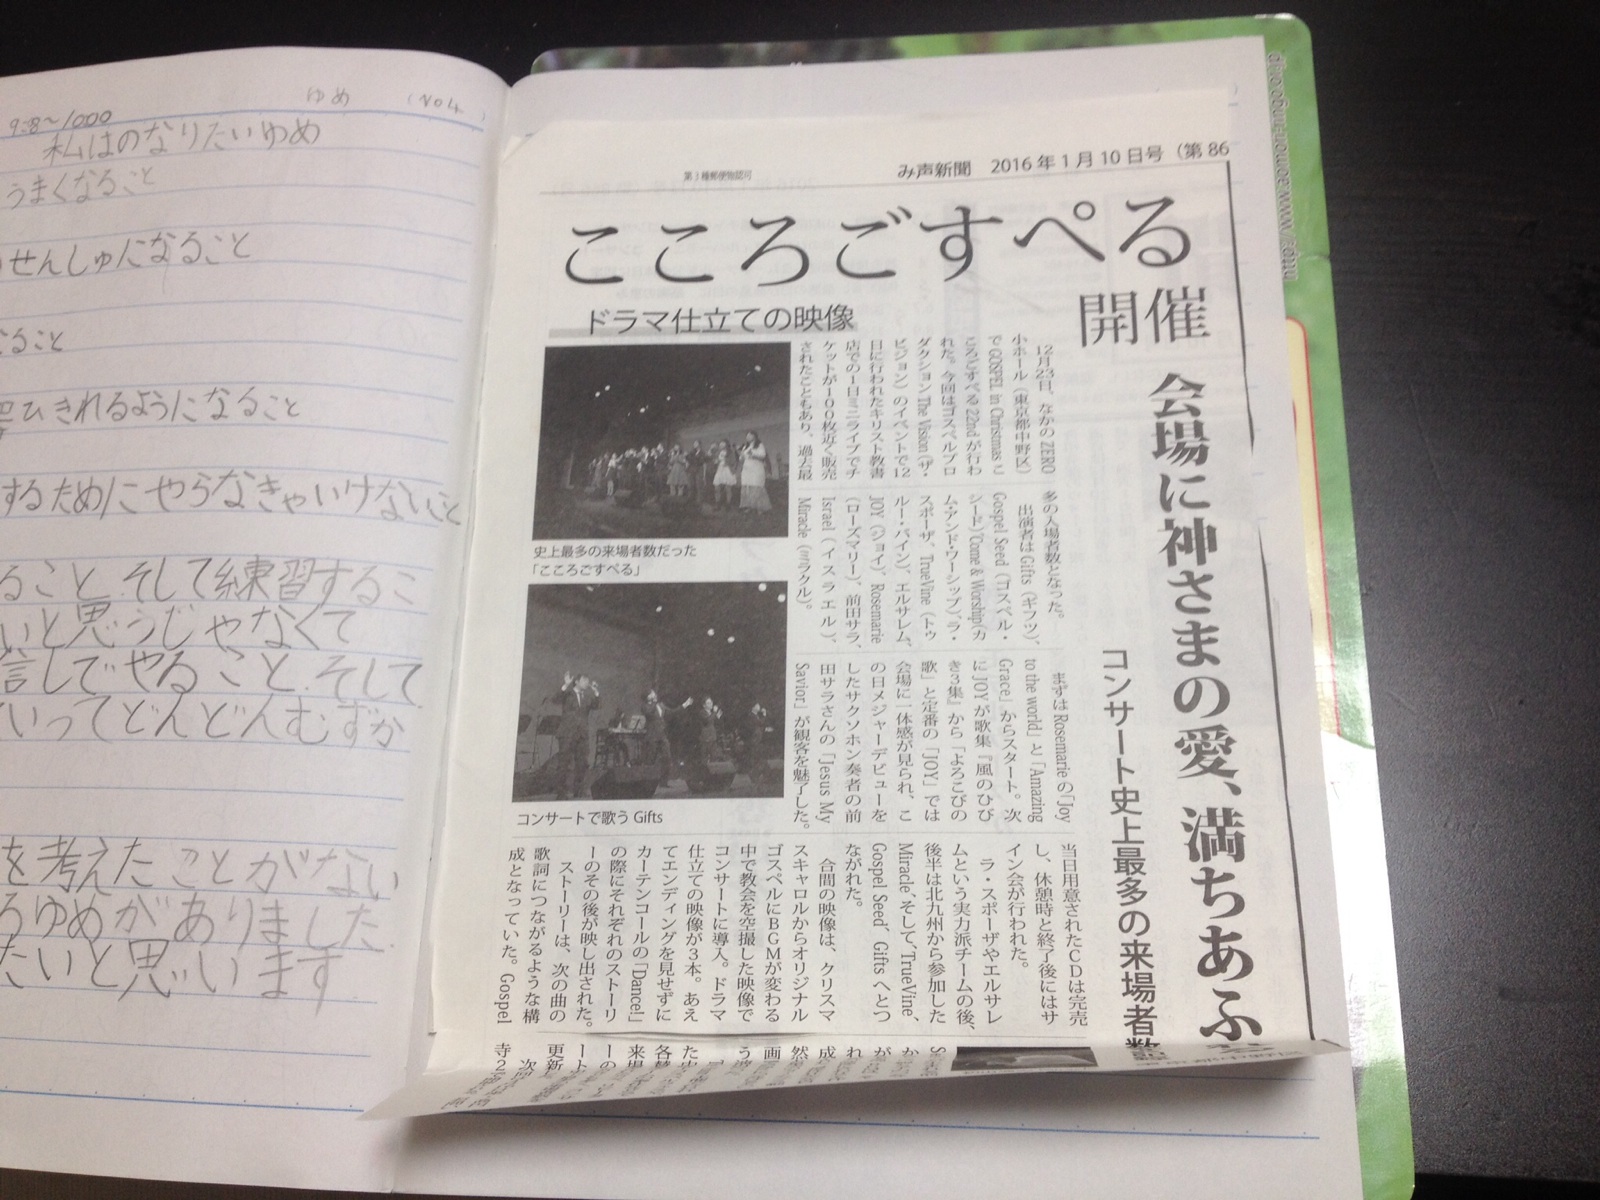 ゆめ (No4 )
9:8～1000
私はのなりたいゆめ
うまくなること
せんしゅになること
ること
ひきれるようになること
するためにやらなきゃいけないこと
ること.そして練習するこ
いと思うじゃなくて
言してやること.そして
いってどんどんむずか
を考えたことがない
ろゆめがありました.
たいと思います.
第3種郵便物認可
み声新聞 2016年1月10日号(第86
こころごすぺる
開催
会場に神さまの愛、満ちあふ
コンサート史上最多の来場者数
ドラマ仕立ての映像
史上最多の来場者数だった
「こころごすぺる」
コンサートで歌う Gifts
12月23日、なかのZERO
小ホール(東京都中野区)
でGOSPEL in Christmas こ
ころごすぺる 22ndが行わ
れた。今回はゴスペルプロ
ダクション The Vision (ザ・
ビジョン)のイベントで12
日に行われたキリスト教書
店での1日ミニライブでチ
ケットが100枚近く販売
されたこともあり、過去最
多の入場者数となった。
出演者はGifts(ギフツ)、
Gospel Seed(ゴスペル・
シード)、Come & Worship(カ
ム・アンド・ワーシップ)、ラ・
スポーザ、TrueVine(トゥ
ルー・バイン)、エルサレム、
JOY(ジョイ)、Rosemarie
(ローズマリー)、前田サラ、
Israel(イスラエル)、
Miracle(ミラクル)。
まずはRosemarieの「Joy
to the world」と「Amazing
Grace」からスタート。次
にJOYが歌集『風のひび
き3集』から「よろこびの
歌」と定番の「JOY」では
会場に一体感が見られ、こ
の日メジャーデビューを
したサクソホン奏者の前
田サラさんの「Jesus My
Savior」が観客を魅了した。
当日用意されたCDは完売
し、休憩時と終了後にはサ
イン会が行われた。
ラ・スポーザやエルサレ
ムという実力派チームの後、
後半は北九州から参加した
Miracle、そして、TrueVine、
Gospel Seed、Giftsへとつ
ながれた。
合間の映像は、クリスマ
スキャロルからオリジナル
ゴスペルにBGMが変わる
中で教会を空撮した映像で
コンサートに導入。ドラマ
仕立ての映像が3本。あえ
てエンディングを見せずに
カーテンコールの「Dance!」
の際にそれぞれのストーリ
ーのその後が映し出された。
ストーリーは、次の曲の
歌詞につながるような構
成となっていた。Gospel